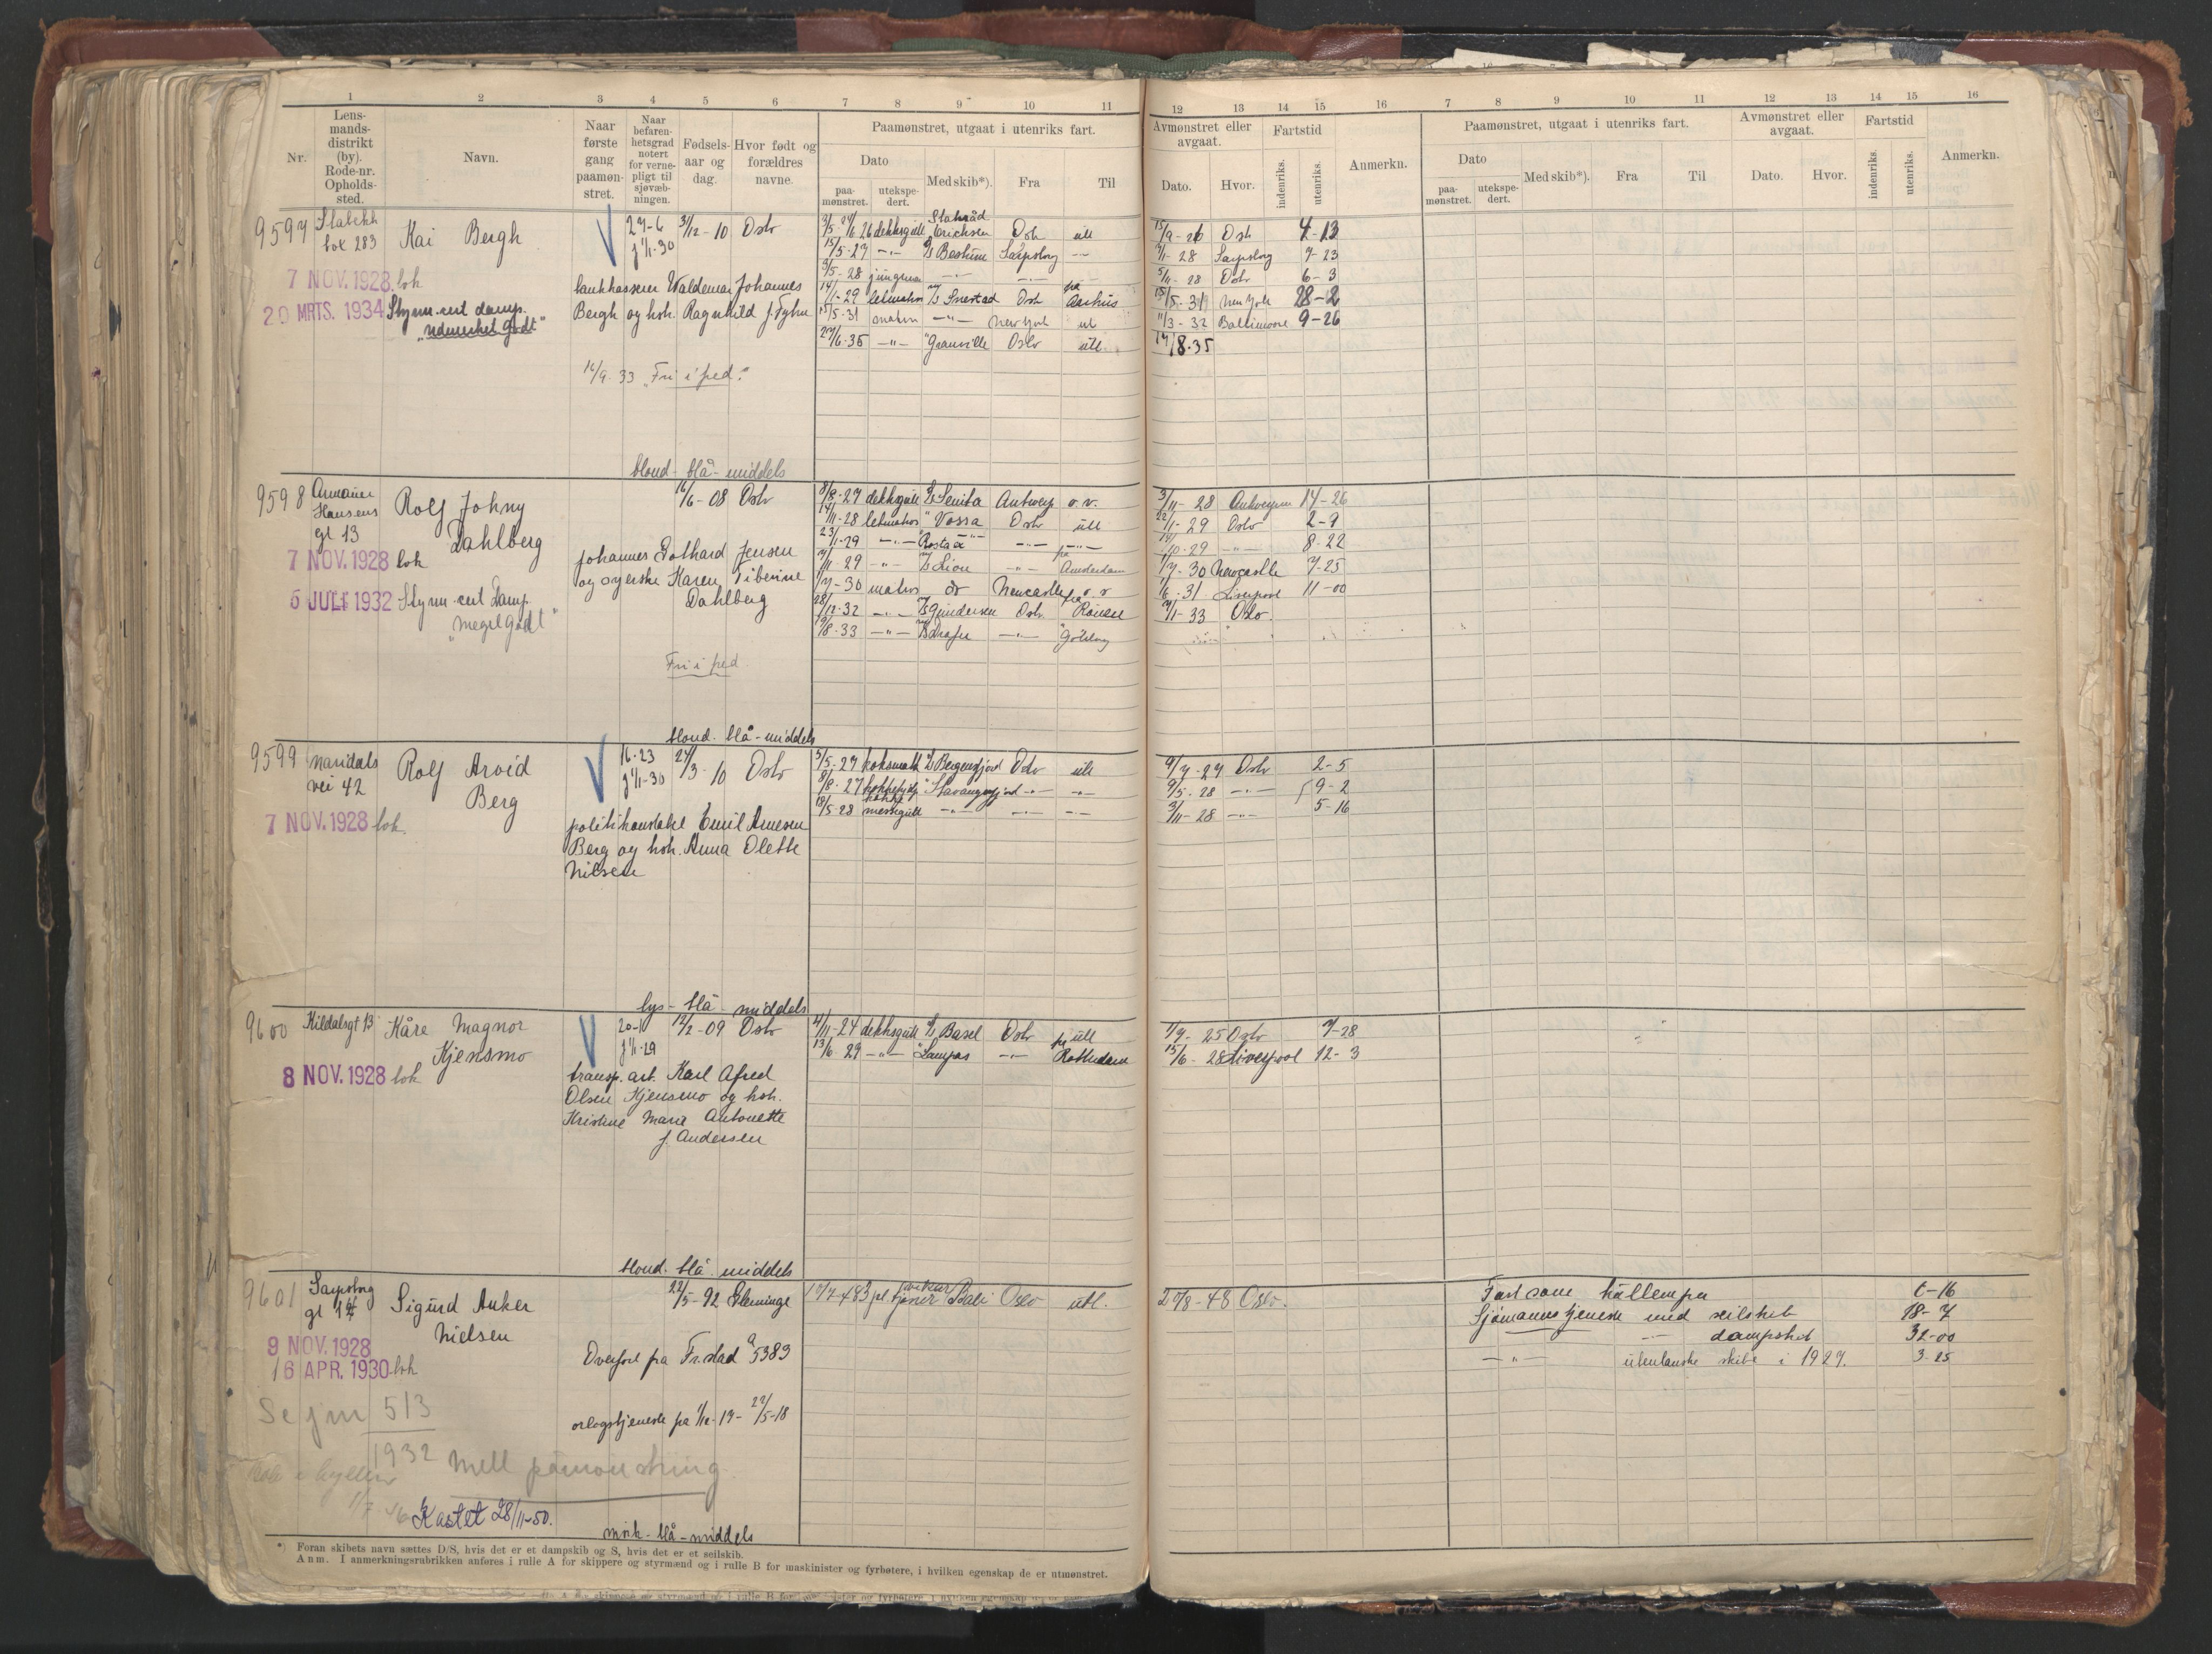 1 2 3 4 5 6 7 8 9 10 11 12 13 14 15 16 7 8 9 10 11 12 13 14 15 16
Nr.
Lens-
mands-
distrikt
(by).
Rode-nr.
Opholds-
sted.
Navn.
Naar
første
gang
paamøn-
stret.
Naar
befaren-
hetsgrad
notert
for verne-
pligt til
sjøvæb-
ningen.
Fødsels-
aar og
dag.
Hvor født og
forældres
navne.
Paamønstret, utgaat i utenriks fart.
Dato
paa-
mønstret.
utekspe-
dert.
Med skib*).
Fra
Til
Avmønstret eller
avgaat.
Dato.
Hvor.
Fartstid
indenriks.
utenriks.
Anmerkn.
Paamønstret, utgaat i utenriks fart.
Dato
paa-
mønstret.
utekspe-
dert.
Med skib*).
Fra
Til
Avmønstret eller
avgaat.
Dato.
Hvor.
Fartstid
indenriks.
utenriks.
Anmerkn.
9597 Stabekk
box 283
Kai Bergh
27-6
f 1/1-30
3/12-10 Oslo
7 NOV. 1928 boh
20 MRTS. 1934 Styrm.cert damp.
"udmerket godt"
bankkasserer Waldemar Johannes
Bergh og hoh. Ragnhild f. Fyhn
16/9.33 "Fri i fred."
blond - blå - middels
dekksgutt Statsråd Erichsen Oslo utl
15/5-27 -"- Bestum Sarpsborg -"-
5-28 jungm -"- -"-
1-29 letmatros Oslo på Aarhus
15/5-31 matros -"- New York ut
6-35 -"- "Granville Oslo utl
15/9-26 Oslo 4-13
1-28 Sarpsborg 7-23
5/11-28 Oslo 6-3
15/5-31 New York 28-2
11/3-32 Baltimore 9-26
17/8.35
9598 Armauer
Hansens
gt 13
Rolf Johny
Dahlberg
16/6-08 Oslo
7 NOV. 1928 boh
5 JULI 1932 Styrm.cert damp
"meget godt"
Johannes Gothard Jensen
og syerske Karen Tiberine
Dahlberg
Fri i fred
blond - blå - middels
8/8-27 dekksgutt Senita Antwerp o.v.
14/11-28 letmatros " Vossa Oslo utl
23/1-29 -"- -"- -"-
11-29 -"- Lion -"- på Amsterdam
1/7-30 matros do Newcastle o.v
12-32 -"- Gundersen Oslo på
19/8-33 -"- -"-
3/11-28 Antwerpen 14-26
22/1-29 Oslo 2-9
10-29 -"- 8-22
1/7-30 Newcastle 7-25
6-31 Liverpool 11-00
1-33 Oslo.
9599 Maridals
vei 42
Rolf Arvid
Berg
16-23
f 1/1-30
27/3-10 Oslo
7 NOV. 1928 boh.
politikonstabel Emil Arnesen
Berg og hoh. Anna Olette
Nilsen
lys - blå - middels
5/5-27 koksmath Bergensfjord Oslo utl
8/8-27 " Stavangerfjord -"- -"-
18/5-28 messegutt -"- -"- -"-
9/7-27 Oslo 2-5
9/5-28 -"- 9-2
3/11-28 -"- 5-16
9600 Kildalsgt 13
Kåre Magnor
Kjensmo
20-1
f 1/1-29
12/2-09 Oslo
8 NOV. 1928 boh
transp. arb. Karl Alfred
Olsen Kjensmo og hoh.
Kristine Marie Antonette
f. Andersen
blond - blå - middels
4/11-24 dekksgutt Basel Oslo utl
13/6-27 -"- " Lampas -"- på Rotterdam
1/7-25 Oslo 7-28
15/6-28 Liverpool 12-3
9601 Sarpsborg
gt
Sigurd Anker
Nielsen
22/5-92 Glemmige
9 NOV. 1928
16 APR. 1930 boh
Overført fra Fr.stad a 5383
orlogstjeneste fra 1/12-17 - 22/5-18
Se jm 513
1932 Mell påmønstring
Kastet 28/11-50.
mørk - blå - middels
17/7-48 3 pl. Bali Oslo utl.
27/8-48 Oslo.
Fart som hållempen 6-16
Sjømannstjeneste med seilskib 18-7
-"- dampskib 32-00
-"- utenlanske skibe i 1927. 3-25
*) Foran skibets navn sættes D/S, hvis det er et dampskib og S, hvis det er et seilskib.
Anm. I anmerkningsrubrikken anføres i rulle A for skippere og styrmænd og i rulle B for maskinister og fyrbøtere, i hvilken egenskap de er utmønstret.